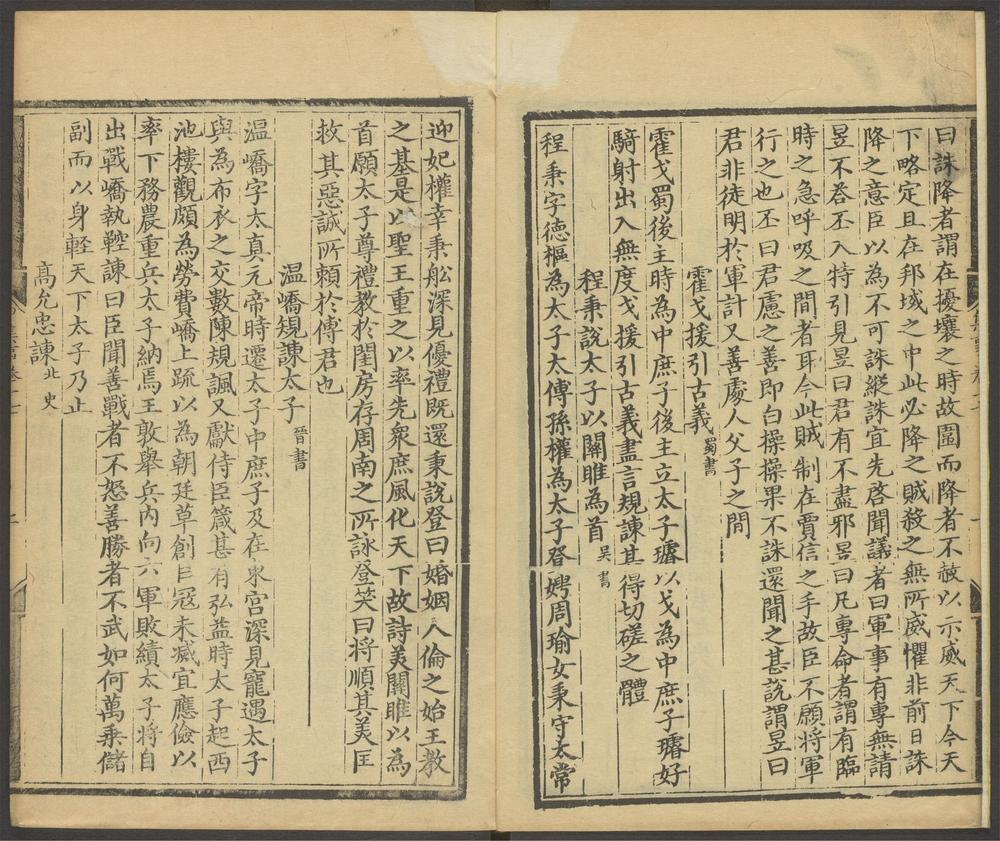 曰誅降者謂在擾壤之時故圍而降者不赦以示威天下今天
下略定且在邦域之中此必降之賊殺之無所威懼非前日誅
降之意臣以為不可誅縱誅宜先啓聞議者曰軍事有專無請
昱不荅丕入特引見昱曰君有不盡邪昱曰凡專命者謂有臨
時之急呼吸之間者耳今此賊制在賈信之手故臣不願將軍
行之也丕曰君慮之善即白操操果不誅還聞之甚説謂昱曰
君非徒明於軍計又善處人父子之間
霍弋援引古義蜀書
霍弋蜀後主時為中庶子後主立太子璿以弋為中庶子璿好
騎射出入無度弋援引古義盡言規諫甚得切磋之體
程秉説太子以關雎為首吳書
程秉字德樞為太子太傅孫權為太子登娉周瑜女秉守太常
迎妃權幸秉舩深見優禮既還秉説登曰婚姻人倫之始王教
之基是以聖王重之以率先衆庶風化天下故詩美關雎以為
首願太子尊禮教於閨房存周南之所詠登笑曰將順其美匡
救其惡誠所賴於傅君也
温嶠規諫太子晉書
温嶠字太真元帝時遷太子中庶子及在東宮深見寵遇太子
與為布衣之交數陳規諷又獻侍臣箴甚有弘益時太子起西
池樓觀頗為勞費嶠上疏以為朝廷草創巨冦未滅宜應儉以
率下務農重兵太子納焉王敦舉兵内向六軍敗績太子將自
出戰嶠執鞚諫曰臣聞善戰者不怒善勝者不武如何萬乗儲
副而以身輕天下太子乃止
高允忠諫北史